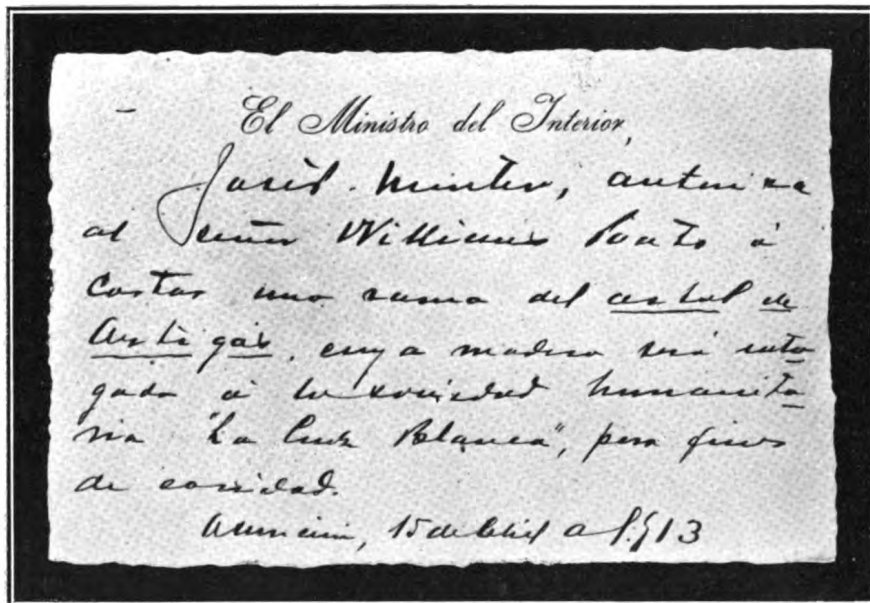 El Ministro del Interior,
José P. Montero, autoriza
al Señor Williams Poats á
cortar una rama del arbol de
Artigas, cuya madera será entre
gada á la sociedad humanita
ria "La Cruz Blanca", para fines
de caridad.
Asunción, 15 de Abril de 1913